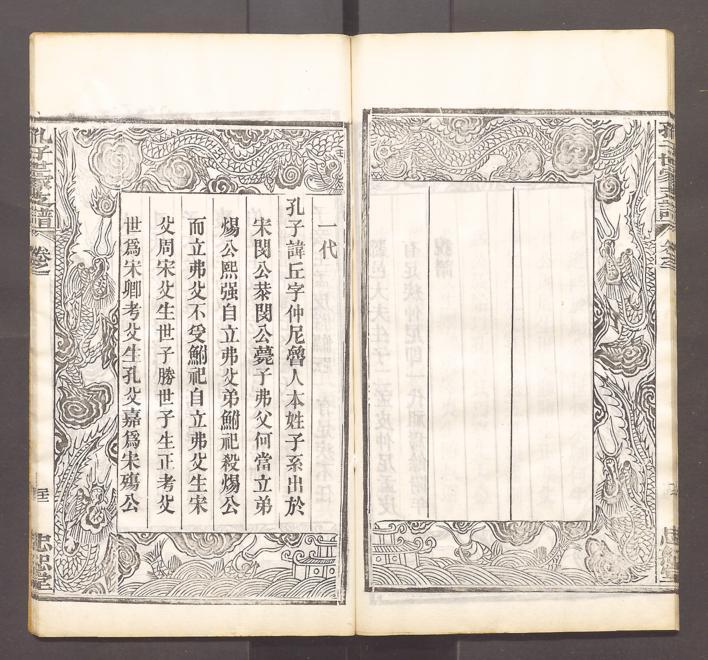 孔子世家支譜
一代
孔子諱丘字仲尼魯人本姓子系出於
宋閔公恭閔公薨子弗父何當立弟
煬公熙强自立弗父弟鮒祀殺煬公
而立弗父不受鮒祀自立弗父生宋
父周宋父生世子勝世子生正考父
世爲宋卿考父生孔父嘉爲宋殤公
孔子世家支譜 卷之一
忠恕堂